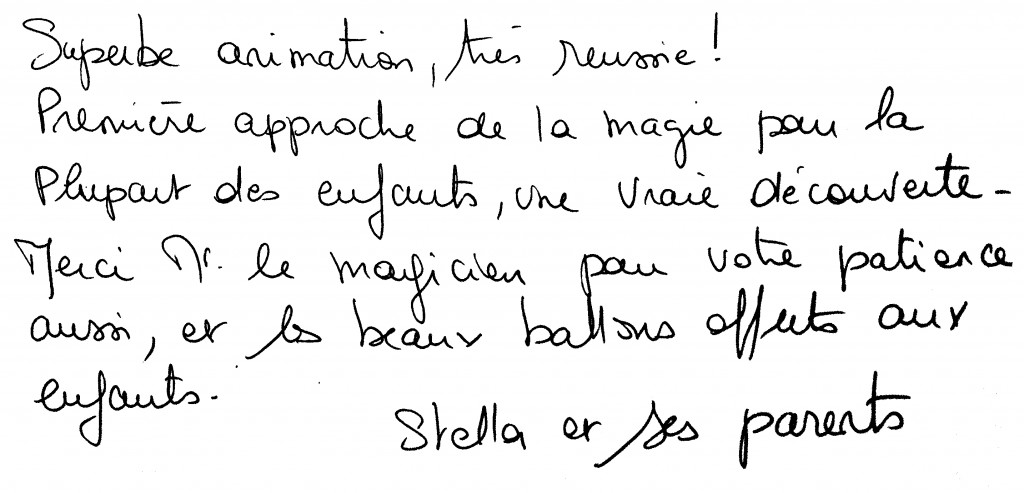 Superbe animation, très reussie !
Première approche de la magie pour la
Plupart des enfants, une vraie découverte -
Merci Mr. le magicien pour votre patience
aussi, et les beaux ballons offerts aux
enfants.
Stella et ses parents